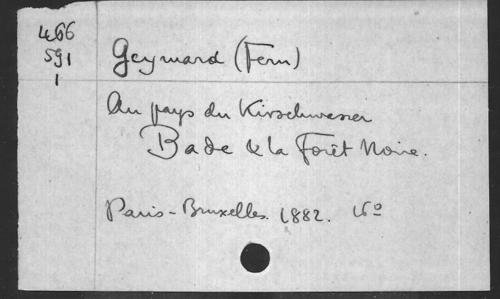 466
591
1
Geymard (Fern)
Au pays du Kirschwasser
Bade & la Forêt Noire.
Paris-Bruxelles. 1882. 16º